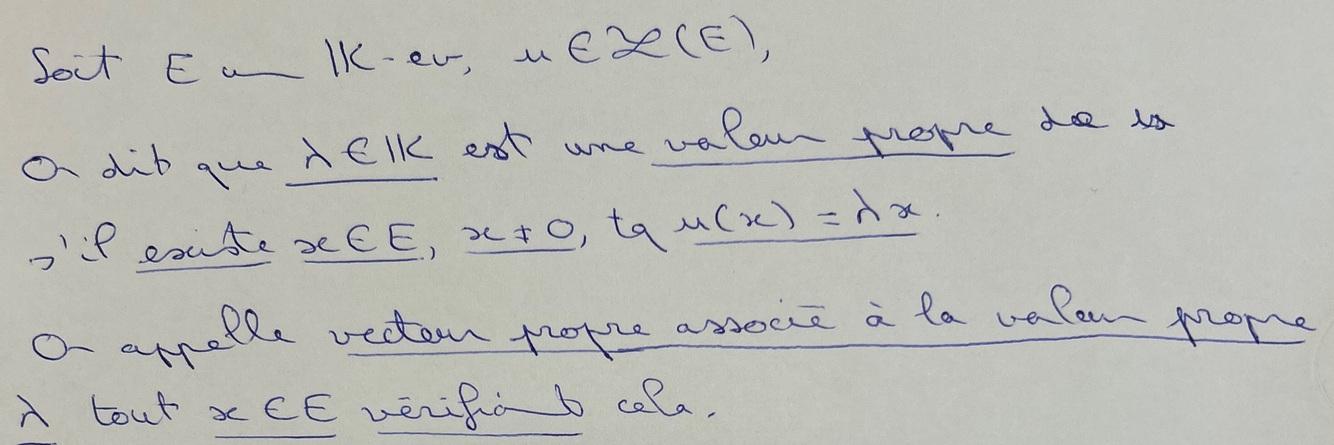 Soit E un 𝕂-ev, u ∈ ℒ(E),
On dit que λ ∈ 𝕂 est une valeur propre de u
s'il existe x ∈ E, x ≠ 0, tq u(x) = λx.
On appelle vecteur propre associé à la valeur propre
λ tout x ∈ E vérifiant cela.